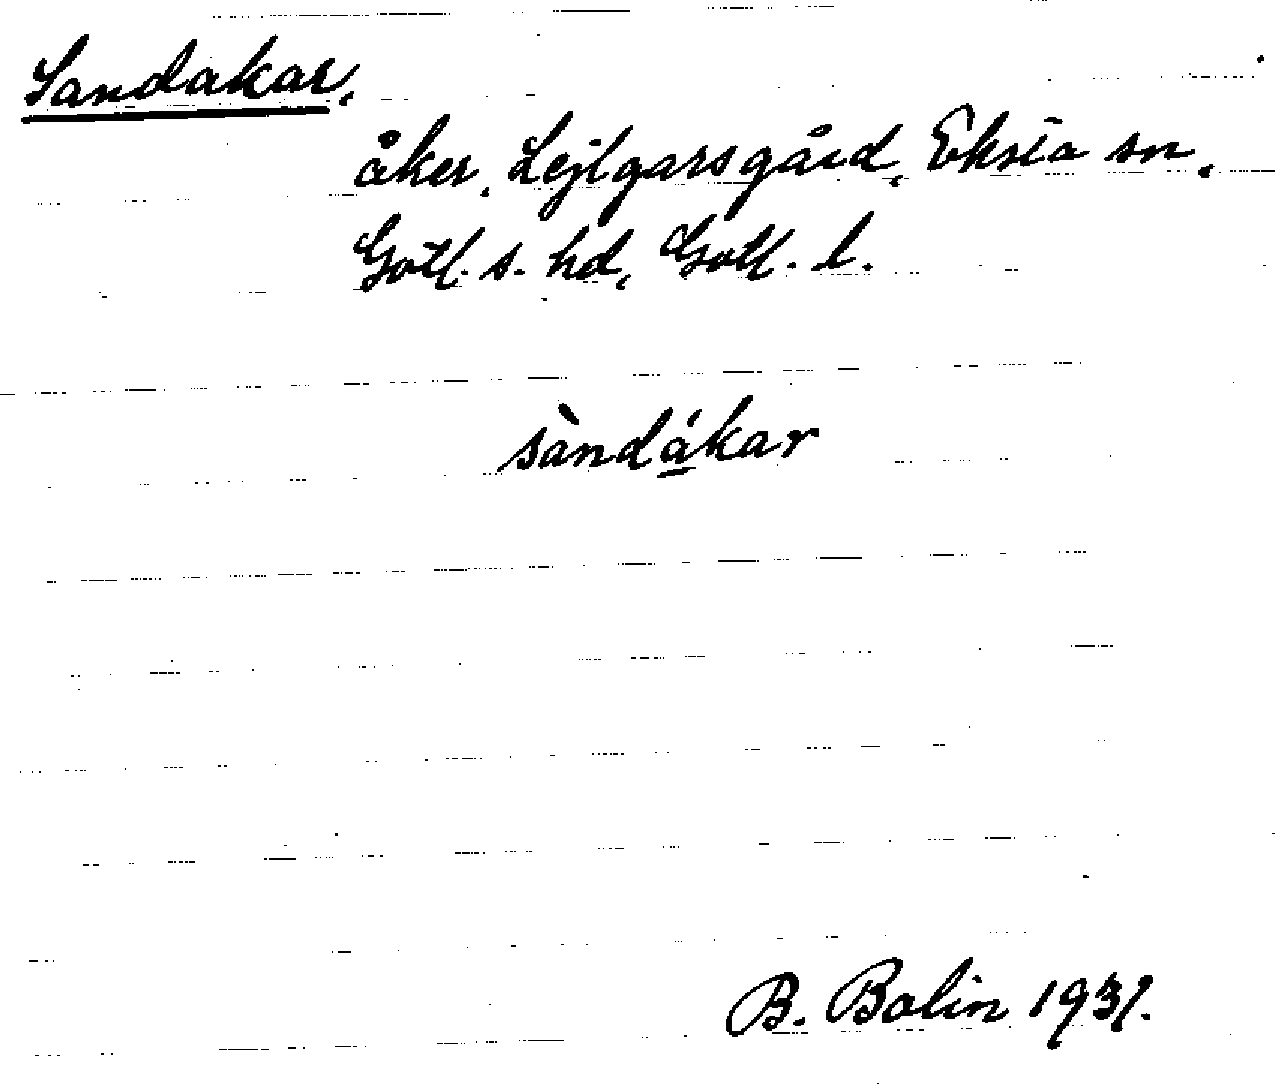 Sandakar,
åker, Lejlgarsgård, Eksta sn,
Gotl. s. hd, Gotl. l.
sàndá̱kar
B. Bolin 1931.